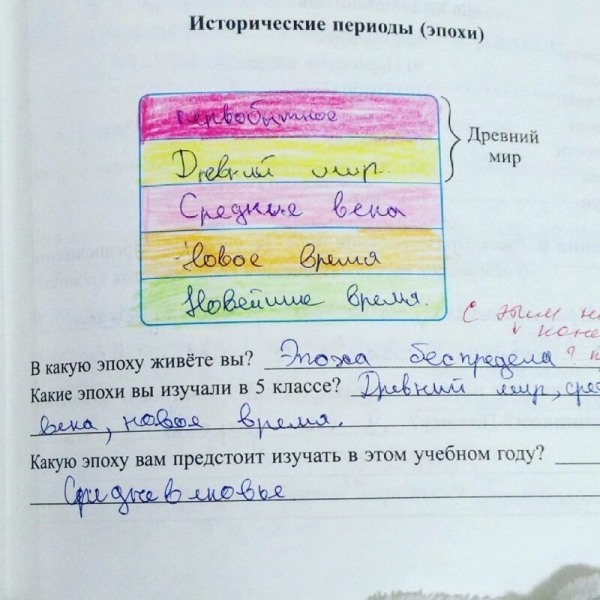 Исторические периоды (эпохи)
первобытное
Древний мир.
Древний
мир
Средние века
Новое время
Новейшие время.
С этим не
В какую эпоху живёте вы? Эпоха беспредела
Какие эпохи вы изучали в 5 классе? Древний мир, сре
века, новое время.
Какую эпоху вам предстоит изучать в этом учебном году?
Средневековье